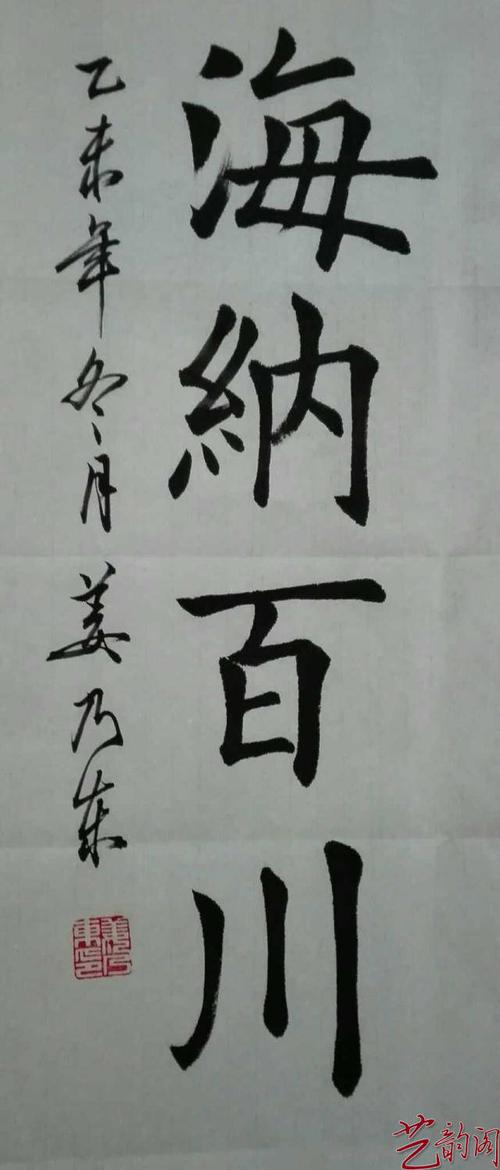 海納百川
乙未年冬月姜乃東
艺韵阁